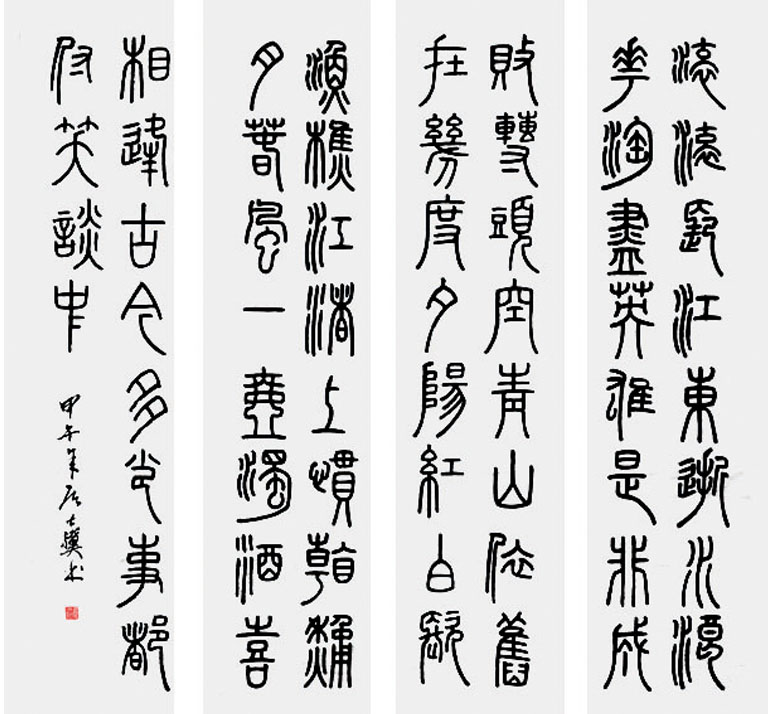 滾滾長江東逝水浪
花淘盡英雄是非成
敗轉頭空青山依舊
在幾度夕陽紅白髮
漁樵江渚上慣看秋
月春風一壺濁酒喜
相逢古今多少事都
付笑談中
甲午年